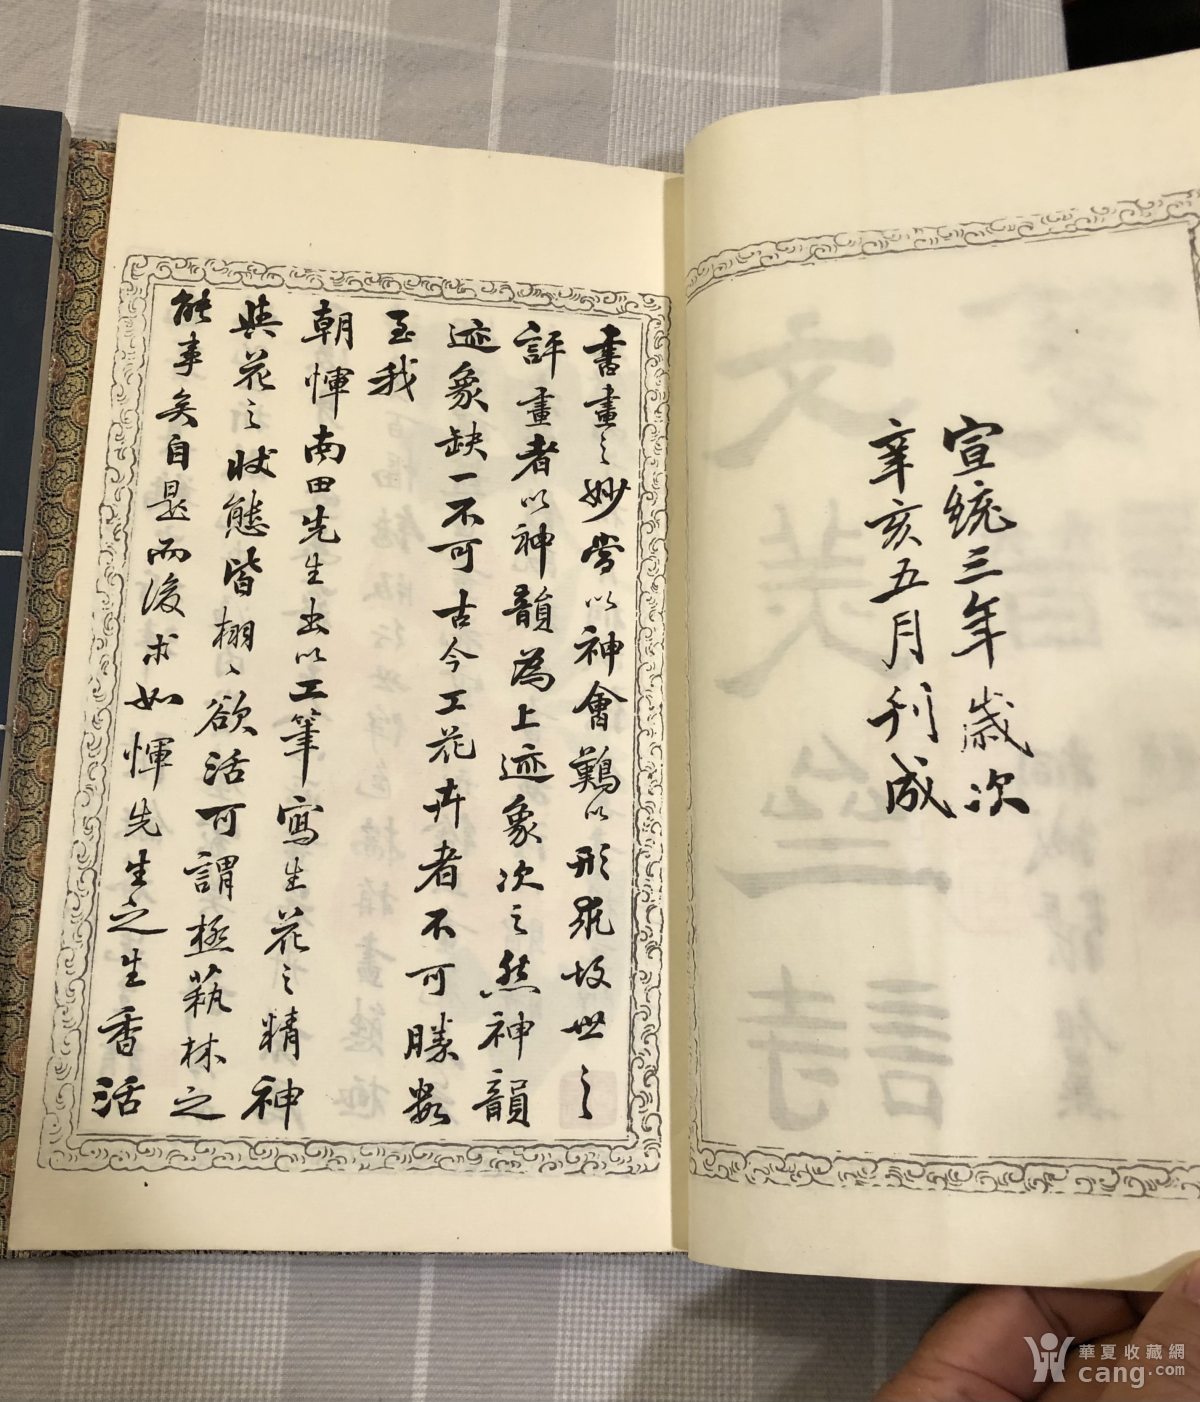 宣統三年歲次
辛亥五月刊成
書畫之妙當以神會難以形求故世之
評畫者以神韻為上迹象次之然神韻
迹象缺一不可古今工花卉者不可勝數
至我
朝惲南田先生出以工筆寫生花之精神
與花之狀態皆栩〻欲活可謂極藝林之
能事矣自是而後求如惲先生之生香活
華夏收藏網
cang.com